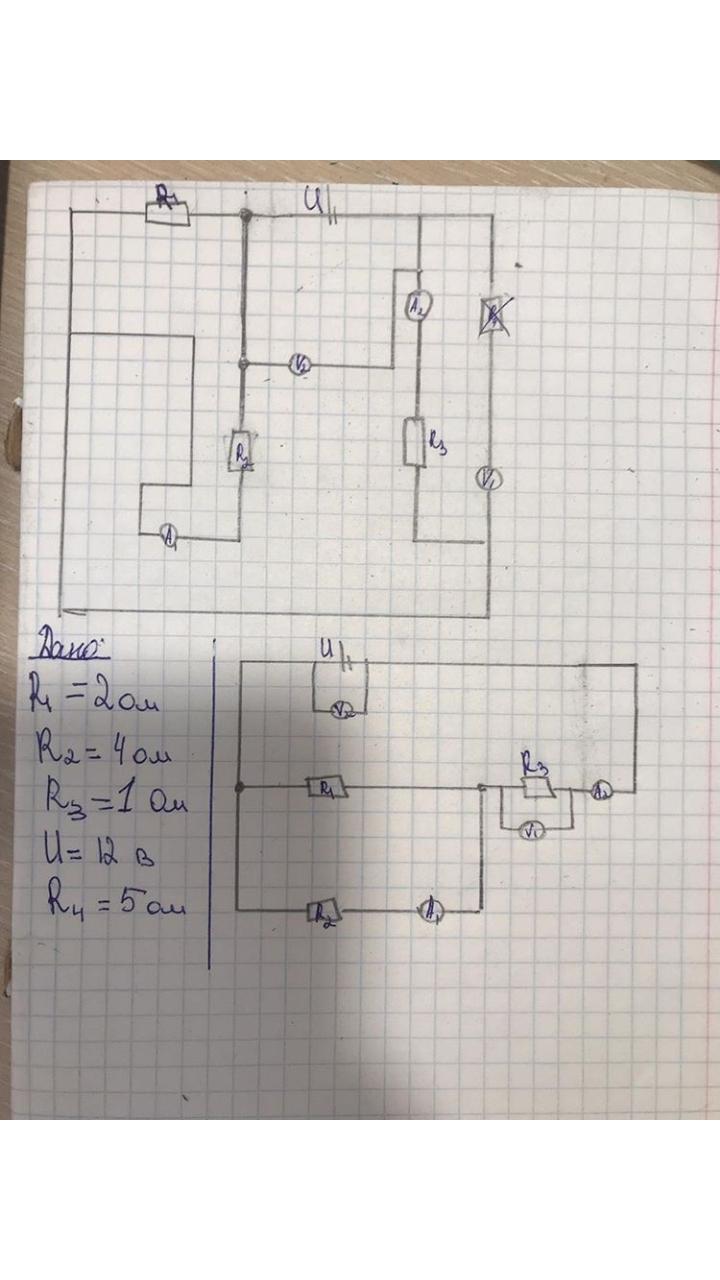 R₁
U
A₂
V₂
R₂
R₃
V₁
A₁
Дано:
R₁ = 2 ом
R₂ = 4 ом
R₃ = 1 Ом
U = 12 в
R₄ = 5 ом
U
V₂
R₁
R₃
A₂
V₁
R₂
A₁